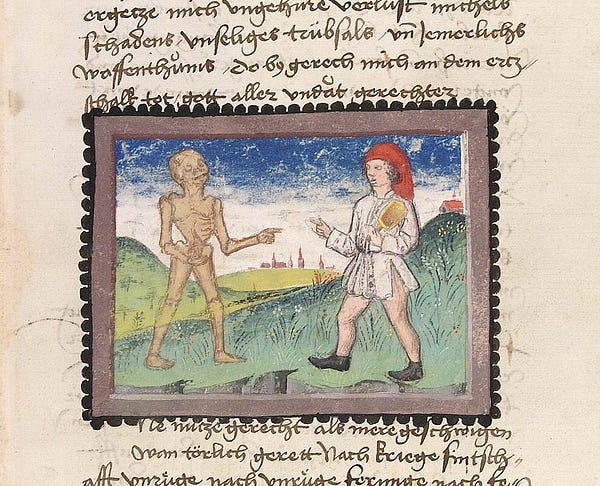 ergetze mich ungehüre verlust michels
schadens vnseliges trübsals vn̄ Jemerlichs
waffenthůms . do by gerech mich an dem ertz
schalk tot gott aller vndät gerechter
Ne nütze gerecht als mere geschwigen
wan törlich gerett Nach kriege fintsch-
afft vnrüge nach vnrüge